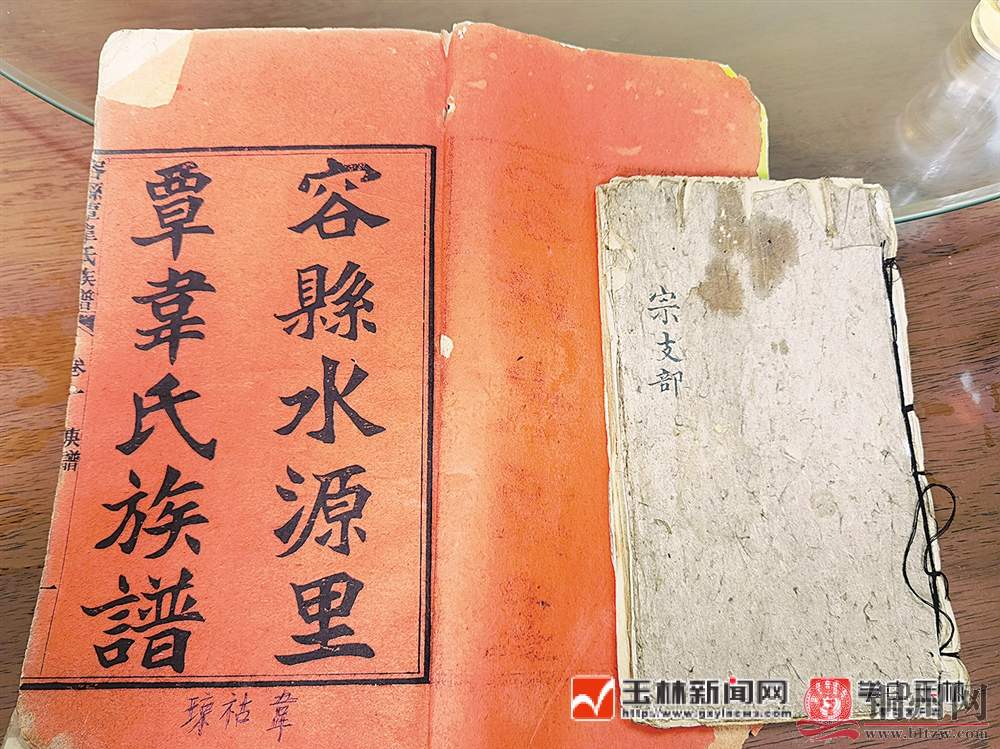 容縣水源里
覃韋氏族譜
容縣覃韋氏族譜
卷一
世譜
一
韋祜琼
宗支部
玉林新闻网
www.gxylnews.com
www.bltzw.com